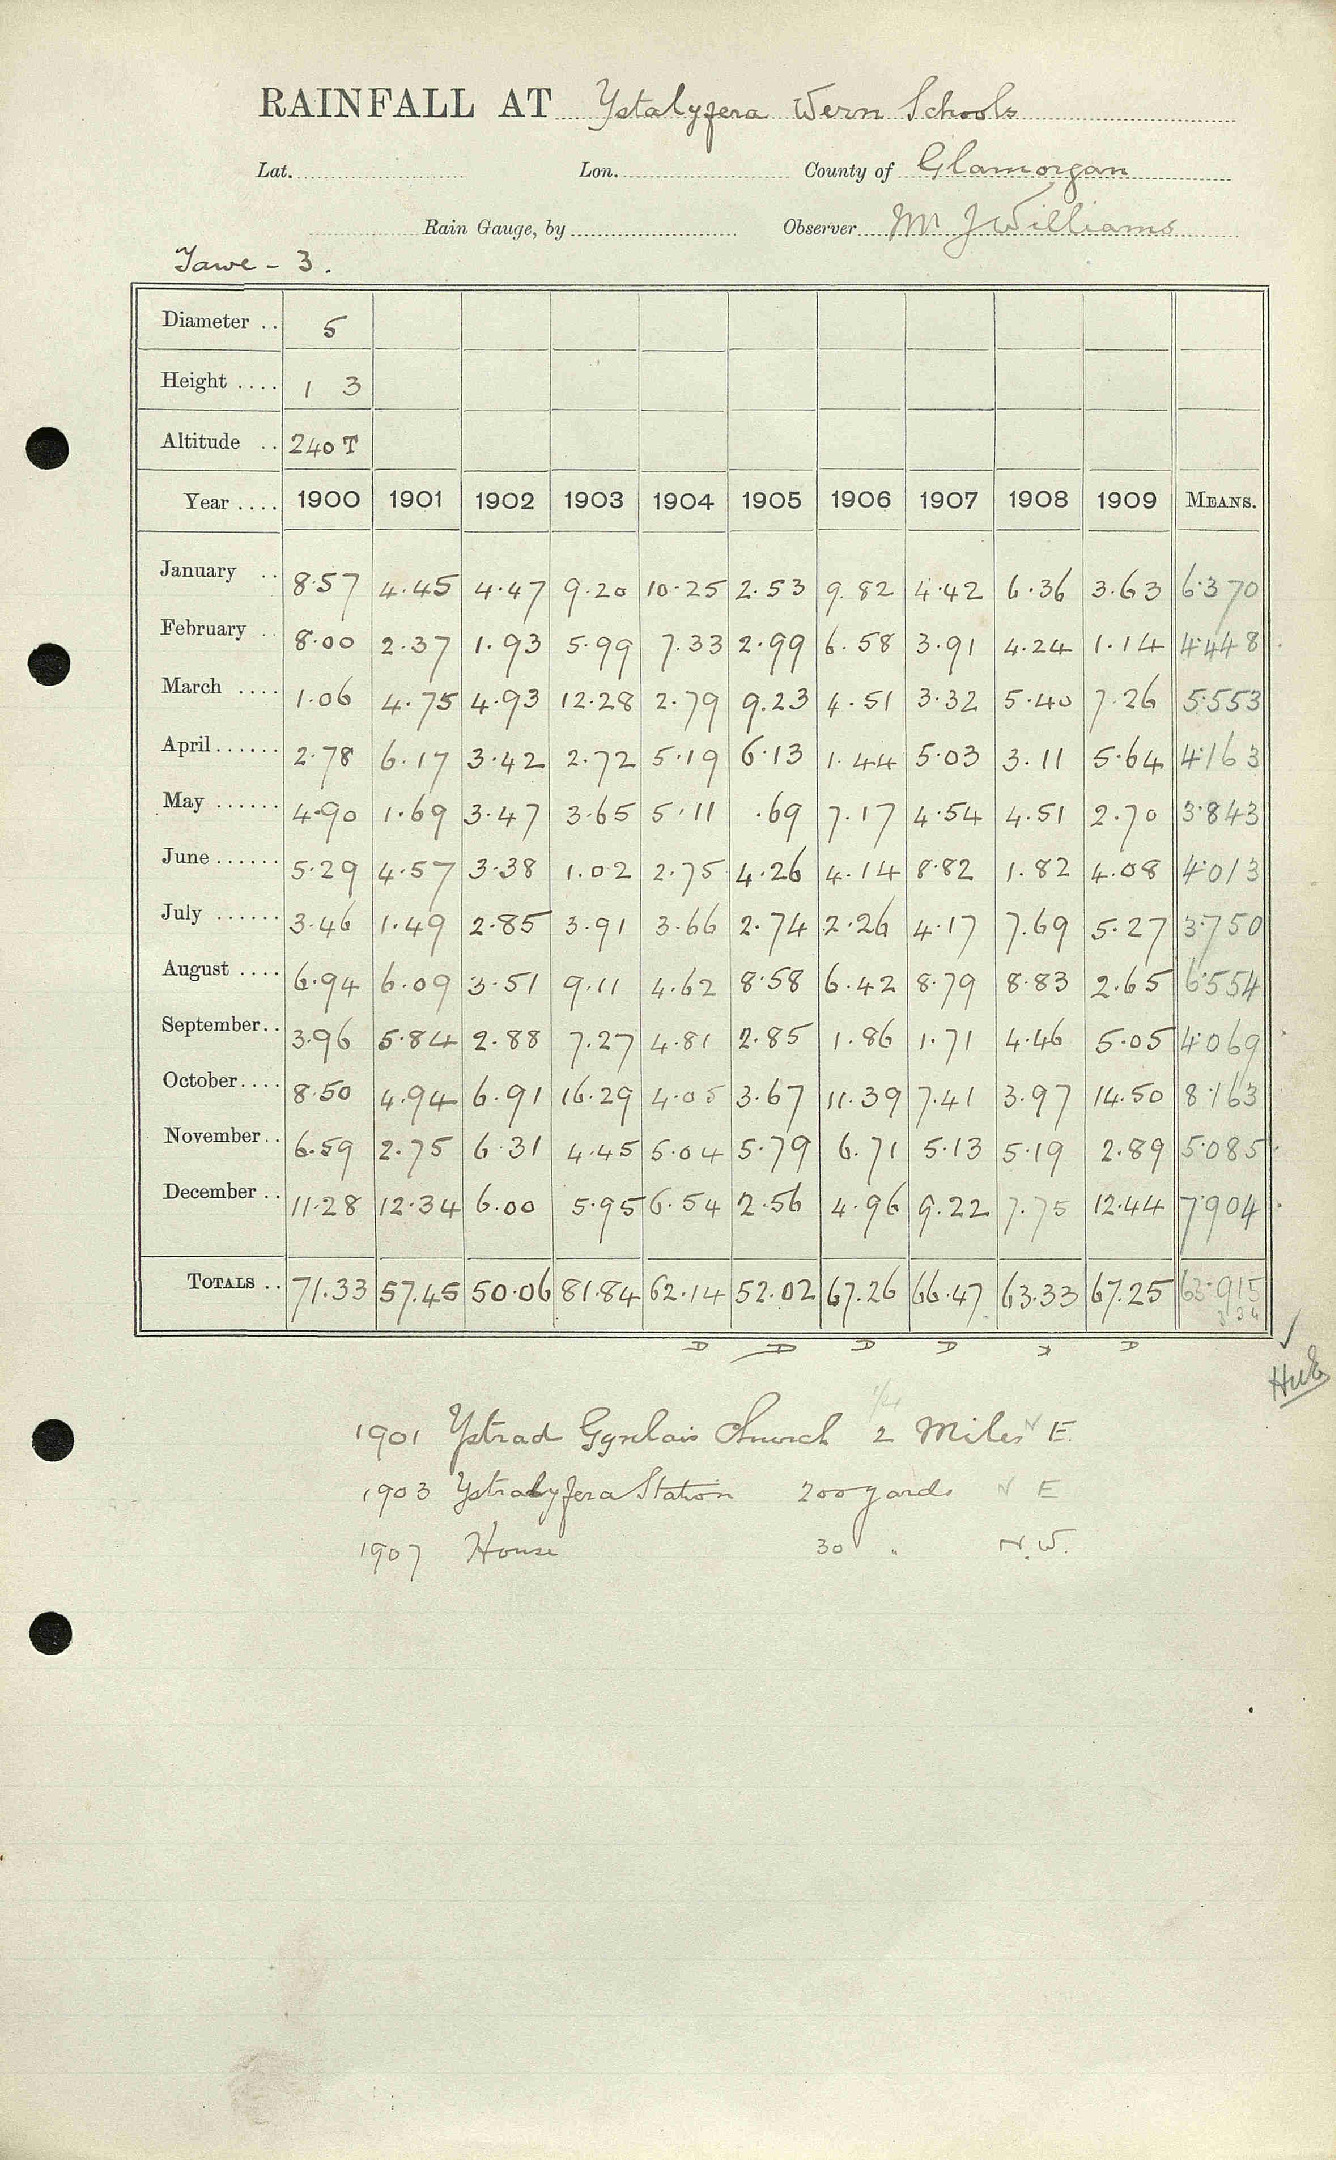 RAINFALL AT Ystalyfera Wern Schools
Lat. Lon. County of Glamorgan
Rain Gauge, by Observer Mr J Williams
Tawe - 3.
Diameter .. 5
Height .... 1 3
Altitude .. 240 T
Year .... 1900 1901 1902 1903 1904 1905 1906 1907 1908 1909 MEANS.
January .. 8.57 4.45 4.47 9.20 10.25 2.53 9.82 4.42 6.36 3.63 6.370
February .. 8.00 2.37 1.93 5.99 7.33 2.99 6.58 3.91 4.24 1.14 4.448
March .... 1.06 4.75 4.93 12.28 2.79 9.23 4.51 3.32 5.40 7.26 5.553
April ...... 2.78 6.17 3.42 2.72 5.19 6.13 1.44 5.03 3.11 5.64 4.163
May ...... 4.90 1.69 3.47 3.65 5.11 .69 7.17 4.54 4.51 2.70 3.843
June ...... 5.29 4.57 3.38 1.02 2.75 4.26 4.14 8.82 1.82 4.08 4.013
July ...... 3.46 1.49 2.85 3.91 3.66 2.74 2.26 4.17 7.69 5.27 3.750
August .... 6.94 6.09 3.51 9.11 4.62 8.58 6.42 8.79 8.83 2.65 6.554
September.. 3.96 5.84 2.88 7.27 4.81 2.85 1.86 1.71 4.46 5.05 4.069
October.... 8.50 4.94 6.91 16.29 4.05 3.67 11.39 7.41 3.97 14.50 8.163
November.. 6.59 2.75 6.31 4.45 5.04 5.79 6.71 5.13 5.19 2.89 5.085
December .. 11.28 12.34 6.00 5.95 6.54 2.56 4.96 9.22 7.75 12.44 7.904
TOTALS .. 71.33 57.45 50.06 81.84 62.14 52.02 67.26 66.47 63.33 67.25 63.915
D D D D D
1/4
1901 Ystrad Gynlais Church 2 Miles N E.
1903 Ystralyfera Station 200 yards N E
1907 House 30 " N.W.